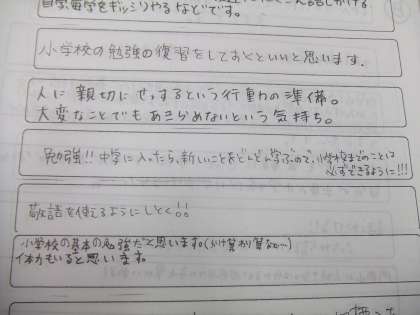 自家毎学をギッシリやるなどです。
小学校の勉強の復習をしておくといいと思います.
人に親切にせっするという行動の準備。
大変なことでもあきらめないという気持ち。
勉強!!中学に入ったら、新しいことをどんどん学ぶので、小学校までのことは
必ずできるように!!!
敬語を使えるようにしとく!!
小学校の基本の勉強だと思います。(かけ算わり算など…)
体力もいると思います。